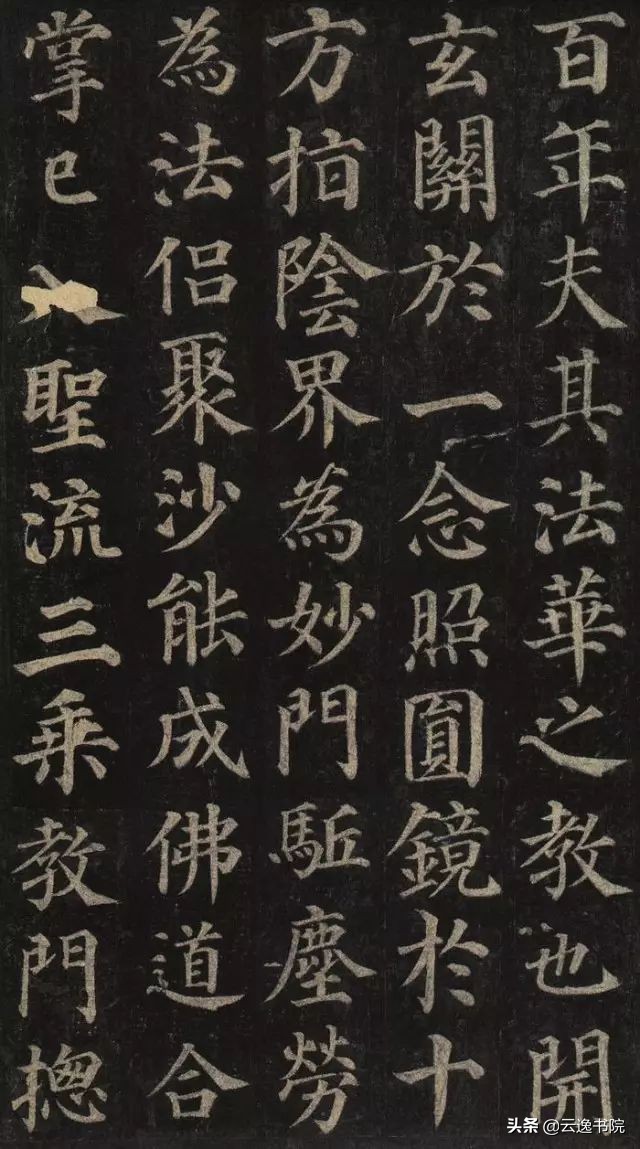 百年夫其法華之教也開
玄關於一念照圓鏡於十
方指陰界為妙門駈塵勞
為法侶聚沙能成佛道合
掌已入聖流三乗教門揔
头条 @云逸书院